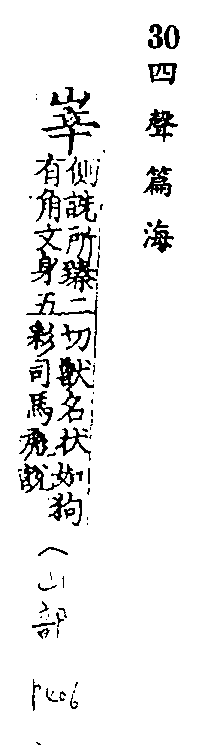 30
四聲篇海
峷
側詵所臻二切獸名状如狗
有角文身五彩司馬彪説
（山部